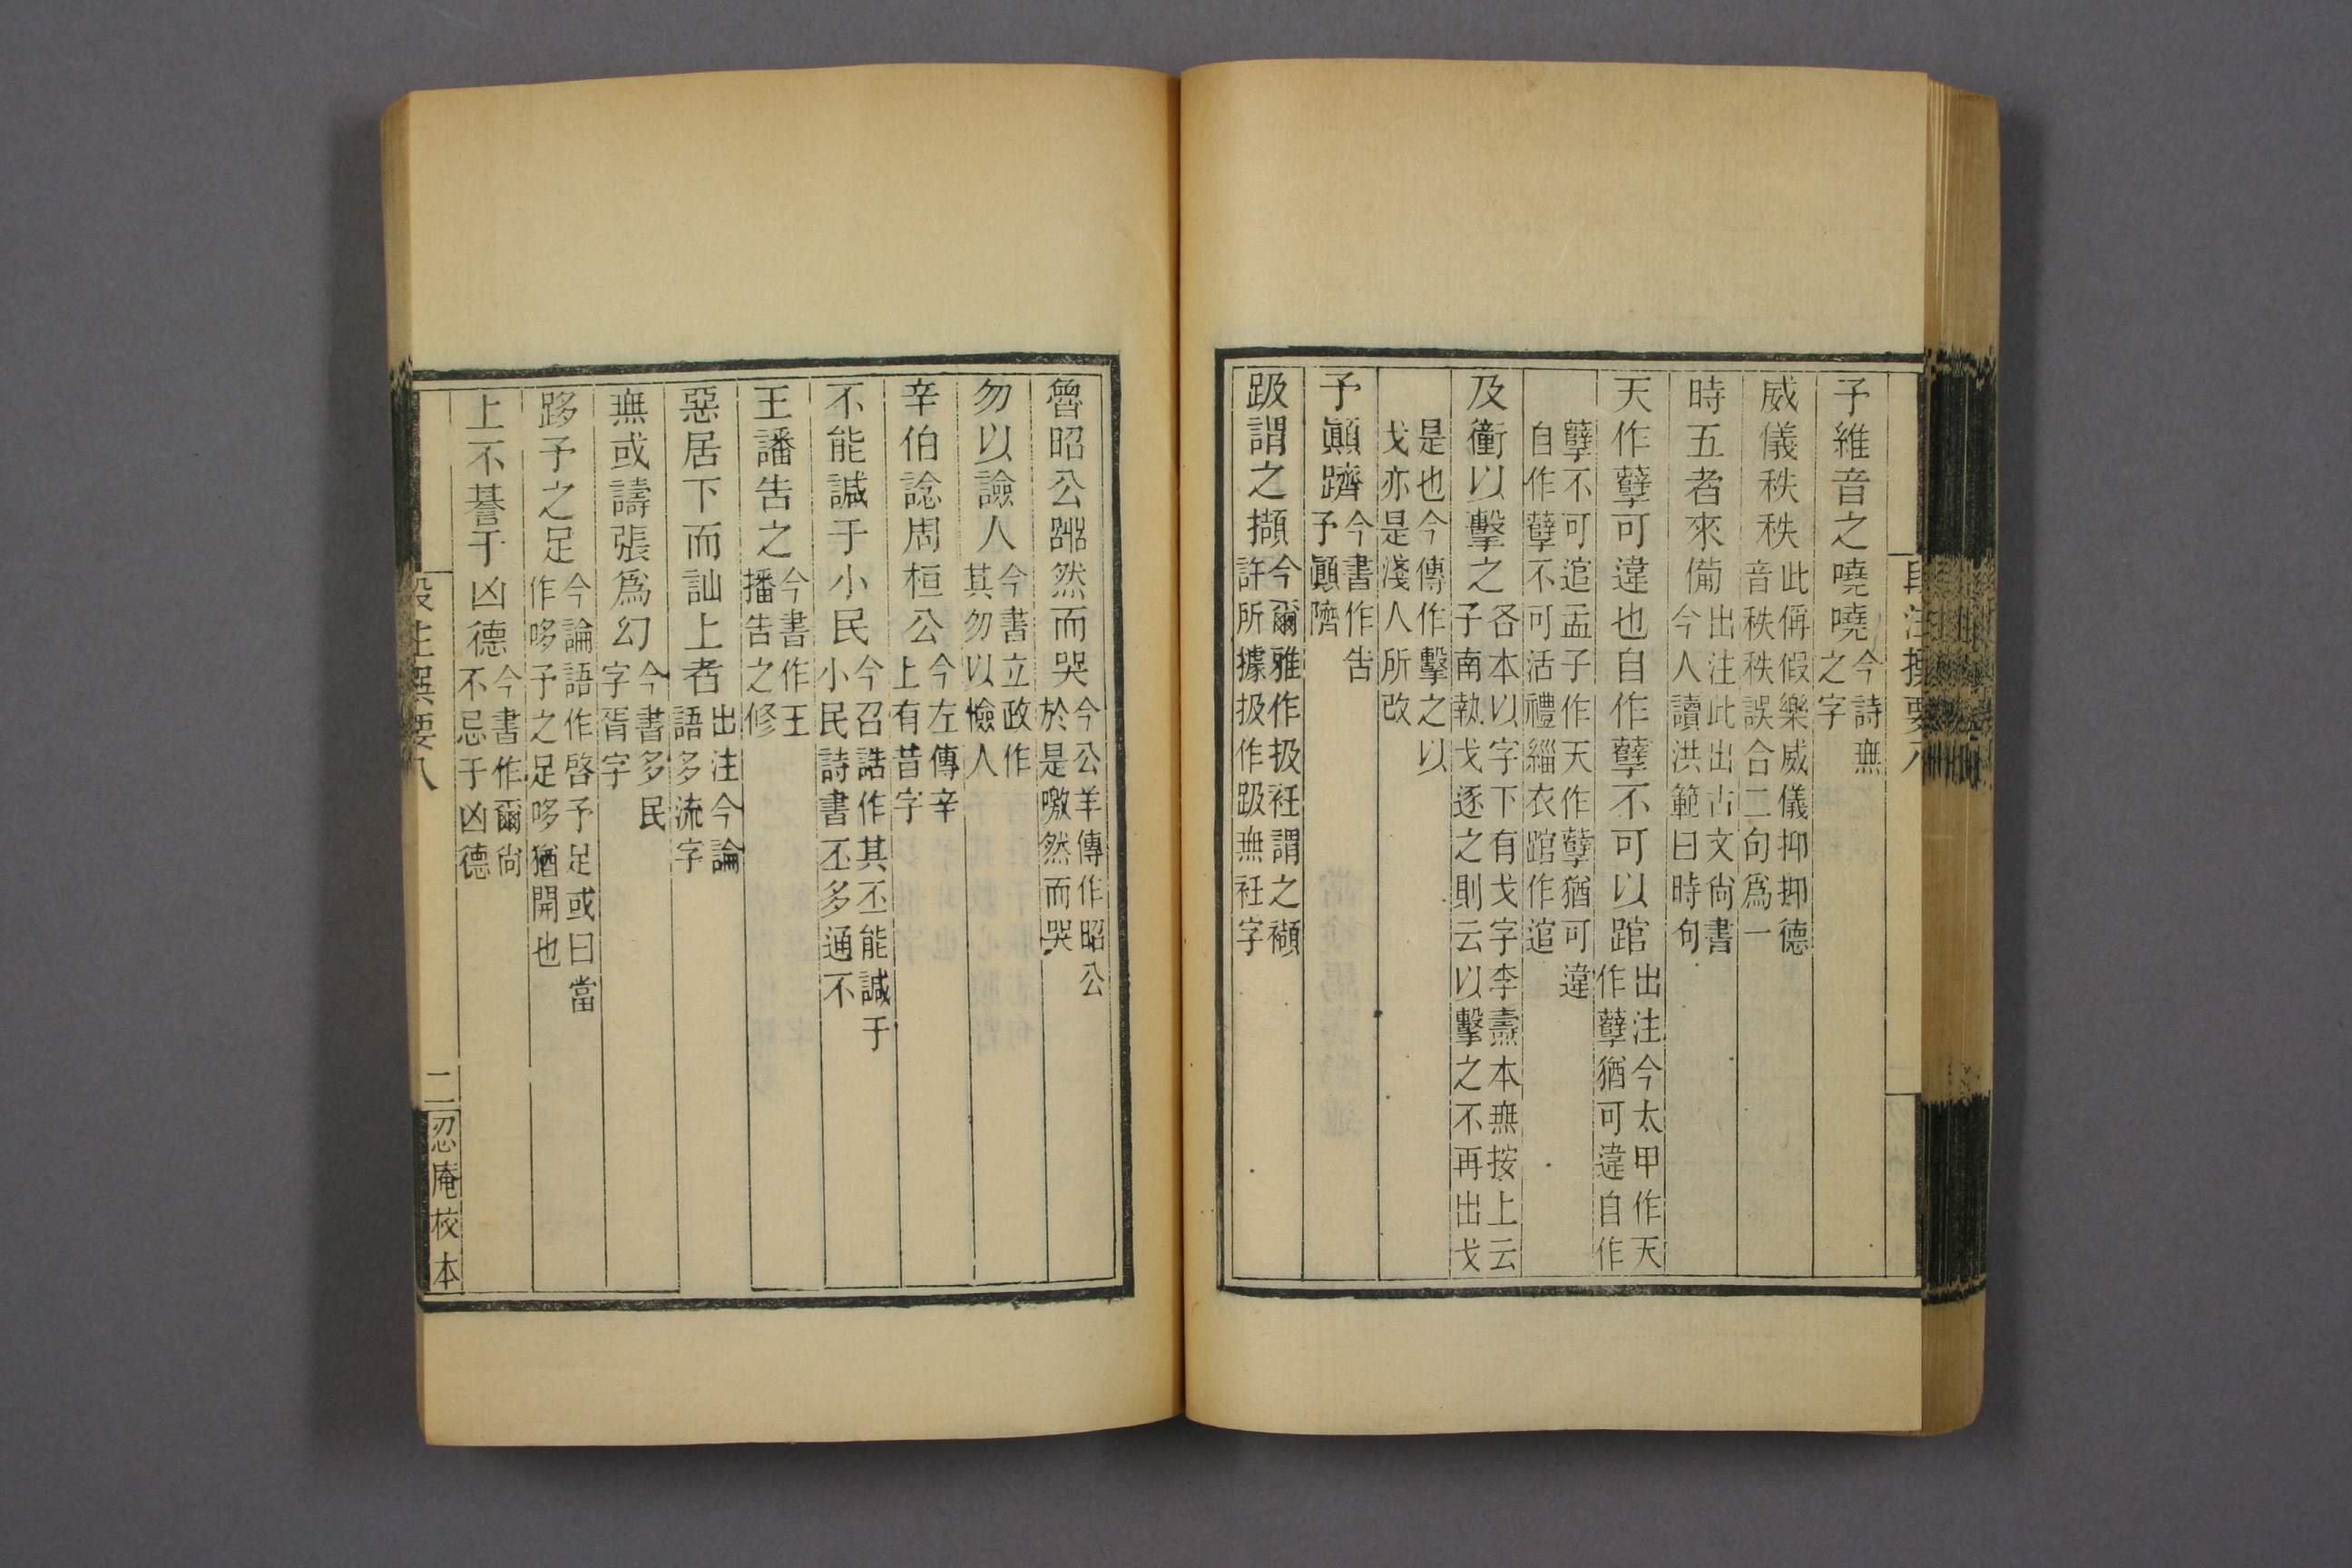 予維音之嘵嘵今詩無之字
威儀秩秩此偁假樂威儀抑抑德音秩秩誤合二句爲一
時五者來備出注此出古文尙書今人讀洪範曰時句
天作孼可違也自作孼不可以踣出注今太甲作天作孼猶可違自作
孼不可逭孟子作天作孼猶可違自作孼不可活禮緇衣踣作逭
及衝以擊之各本以字下有戈字李燾本無按上云子南執戈逐之則云以擊之不再出戈
是也今傳作擊之以戈亦是淺人所改
予顚躋今書作告予顚隮
趿謂之擷今爾雅作扱衽謂之襭許所據扱作趿無衽字
魯昭公然而哭今公羊傳作昭公於是噭然而哭
勿以譣人今書立政作其勿以憸人
辛伯諗周桓公今左傳辛上有昔字
不能諴于小民今召誥作其丕能諴于小民詩書丕多通不
王譒告之今書作王播告之修
惡居下而訕上者出注今論語多流字
無或譸張爲幻今書多民字胥字
跢予之足今論語作啓予足或曰當作哆予之足哆猶開也
上不諅于凶德今書作爾尙不忌于凶德
段注撰要八
二
忍庵校本